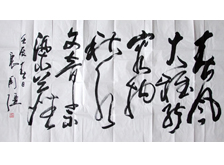 春风
大雅能
容物
秋水
文章不
染塵
壬辰